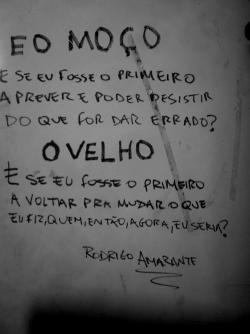 E O MOÇO
E SE EU FOSSE O PRIMEIRO
A PREVER E PODER DESISTIR
DO QUE FOR DAR ERRADO?
O VELHO
E SE EU FOSSE O PRIMEIRO
A VOLTAR PRA MUDAR O QUE
EU FIZ, QUEM, ENTÃO, AGORA, EU SERIA?
RODRIGO AMARANTE